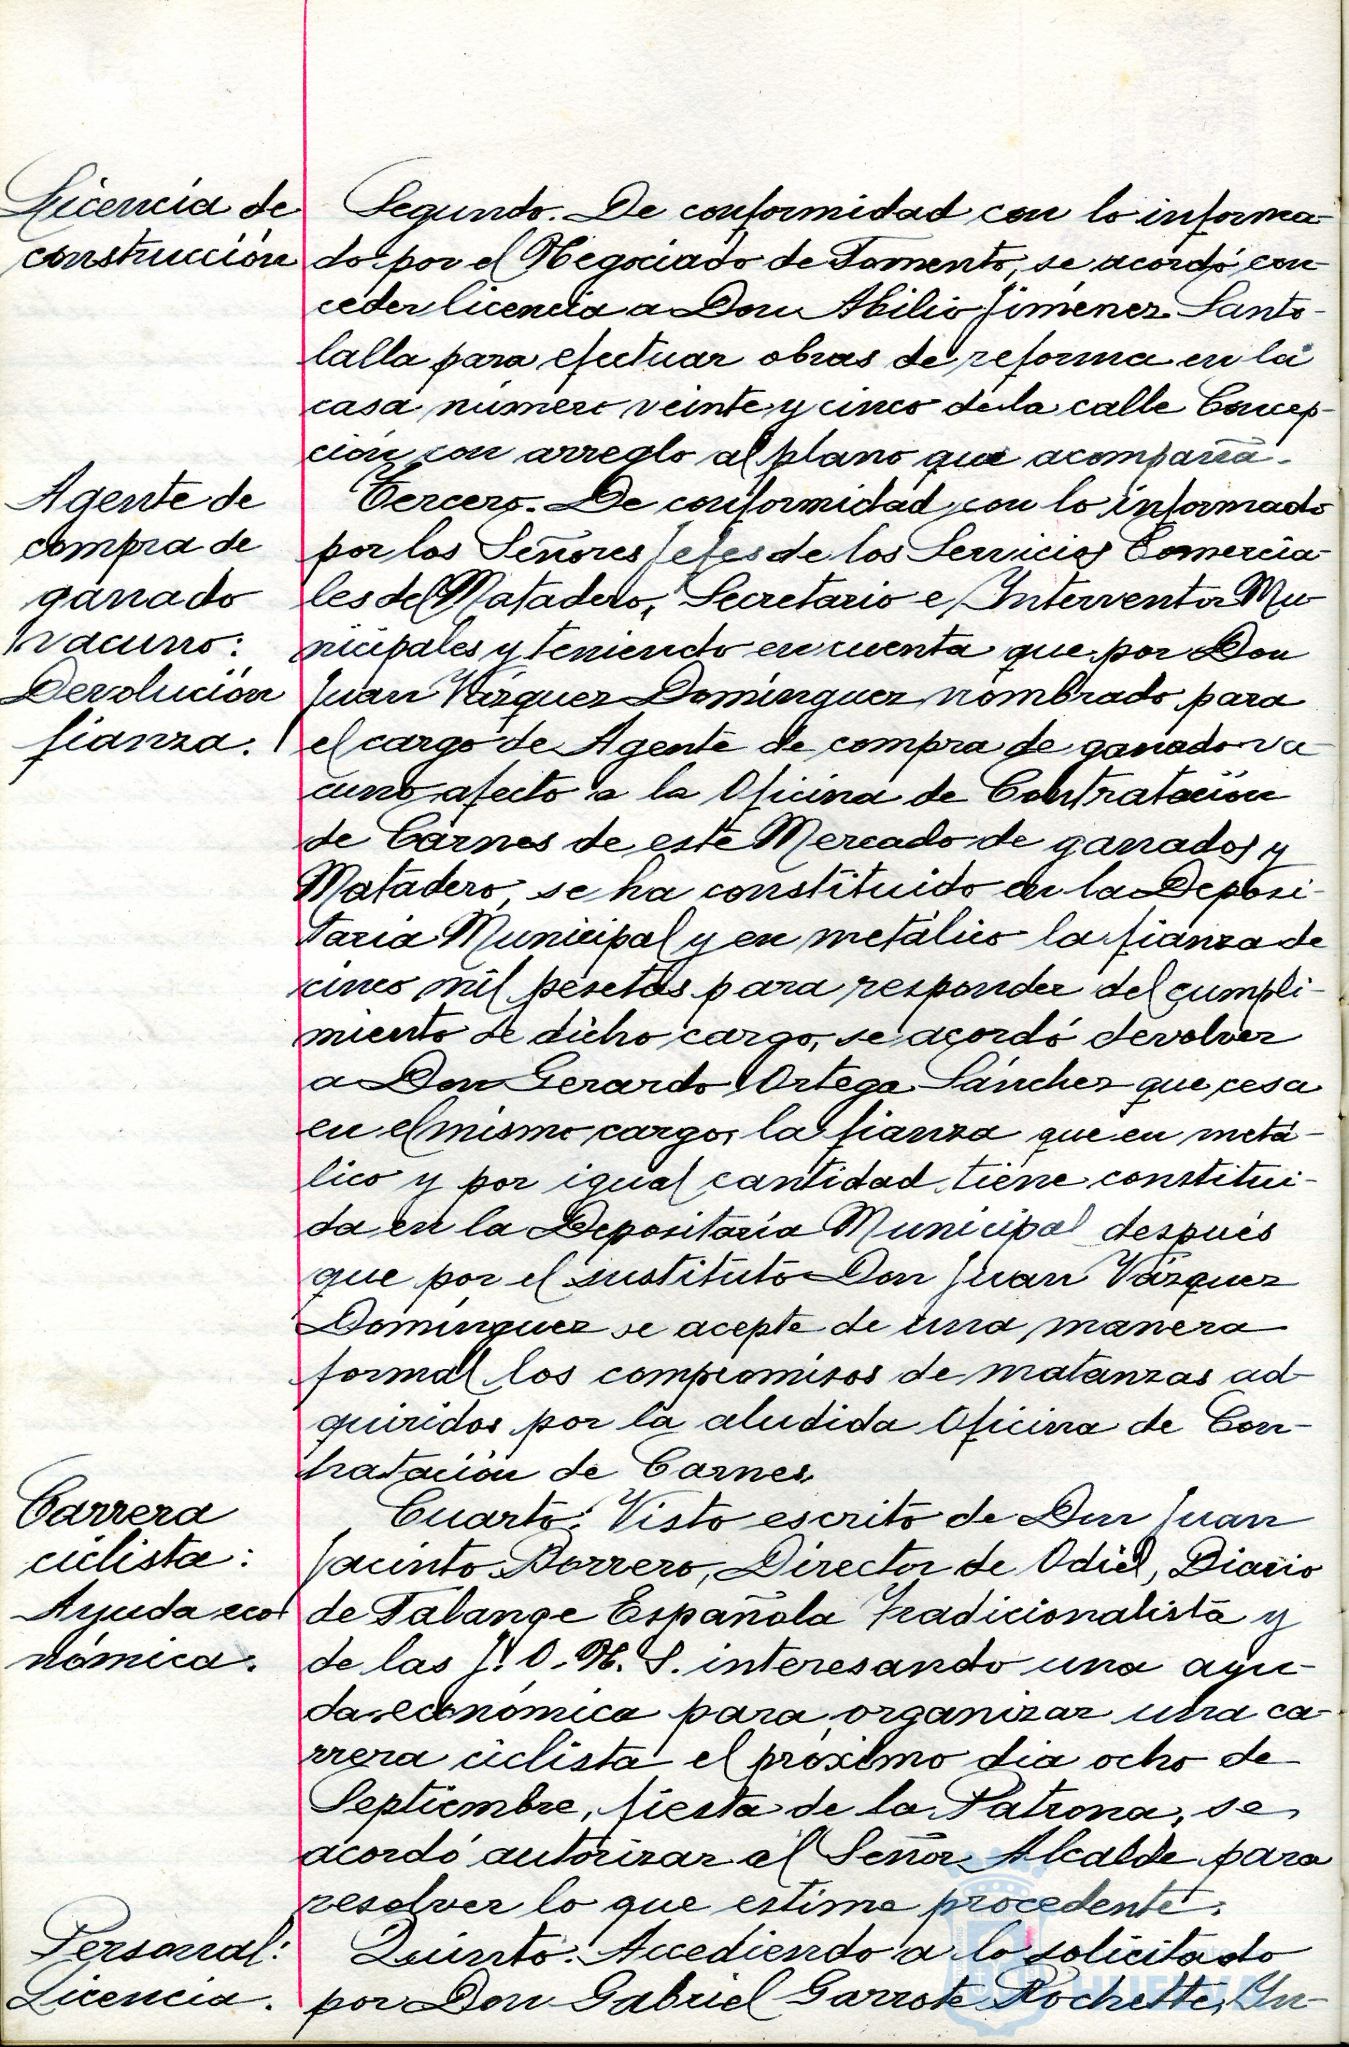 Licencia de
construcción
Segundo.- De conformidad con lo informa-
do por el Negociado de Fomento, se acordó con
ceder licencia a Don Abilio Jiménez Santo-
lalla para efectuar obras de reforma en la
casa número veinte y cinco de la calle Concep-
ción con arreglo al plano que acompaña.
Agente de
compra de
ganado
vacuno:
Devolución
fianza.
Tercero.- De conformidad con lo informado
por los Señores Jefes de los Servicios Comercia-
les del Matadero, Secretario e Interventor Mu-
nicipales y teniendo en cuenta que por Don
Juan Vázquez Domínguez nombrado para
el cargo de Agente de compra de ganado va
cuno afecto a la Oficina de Contratación
de Carnes de este Mercado de ganados y
Matadero, se ha constituido en la Deposi-
taría Municipal y en metálico la fianza de
cinco mil pesetas para responder del cumpli-
miento de dicho cargo, se acordó devolver
a Don Gerardo Ortega Sánchez que cesa
en el mismo cargo, la fianza que en metá-
lico y por igual cantidad tiene constitui-
da en la Depositaría Municipal después
que por el sustituto Don Juan Vázquez
Domínguez se acepte de una manera
formal los compromisos de matanzas ad-
quiridos por la aludida Oficina de Con-
tratación de Carnes.
Carrera
ciclista:
Ayuda eco-
nómica.
Cuarto: Visto escrito de Don Juan
Jacinto Borrero, Director de Odiel, Diario
de Falange Española Tradicionalista y
de las J. O. N. S. interesando una ayu-
da económica para organizar una ca-
rrera ciclista el próximo día ocho de
Septiembre, fiesta de la Patrona, se
acordó autorizar al Señor Alcalde para
resolver lo que estime procedente.
Personal:
Licencia.
Quinto: Accediendo a lo solicitado
por Don Gabriel Garrote Rochette, In-
HUELVA